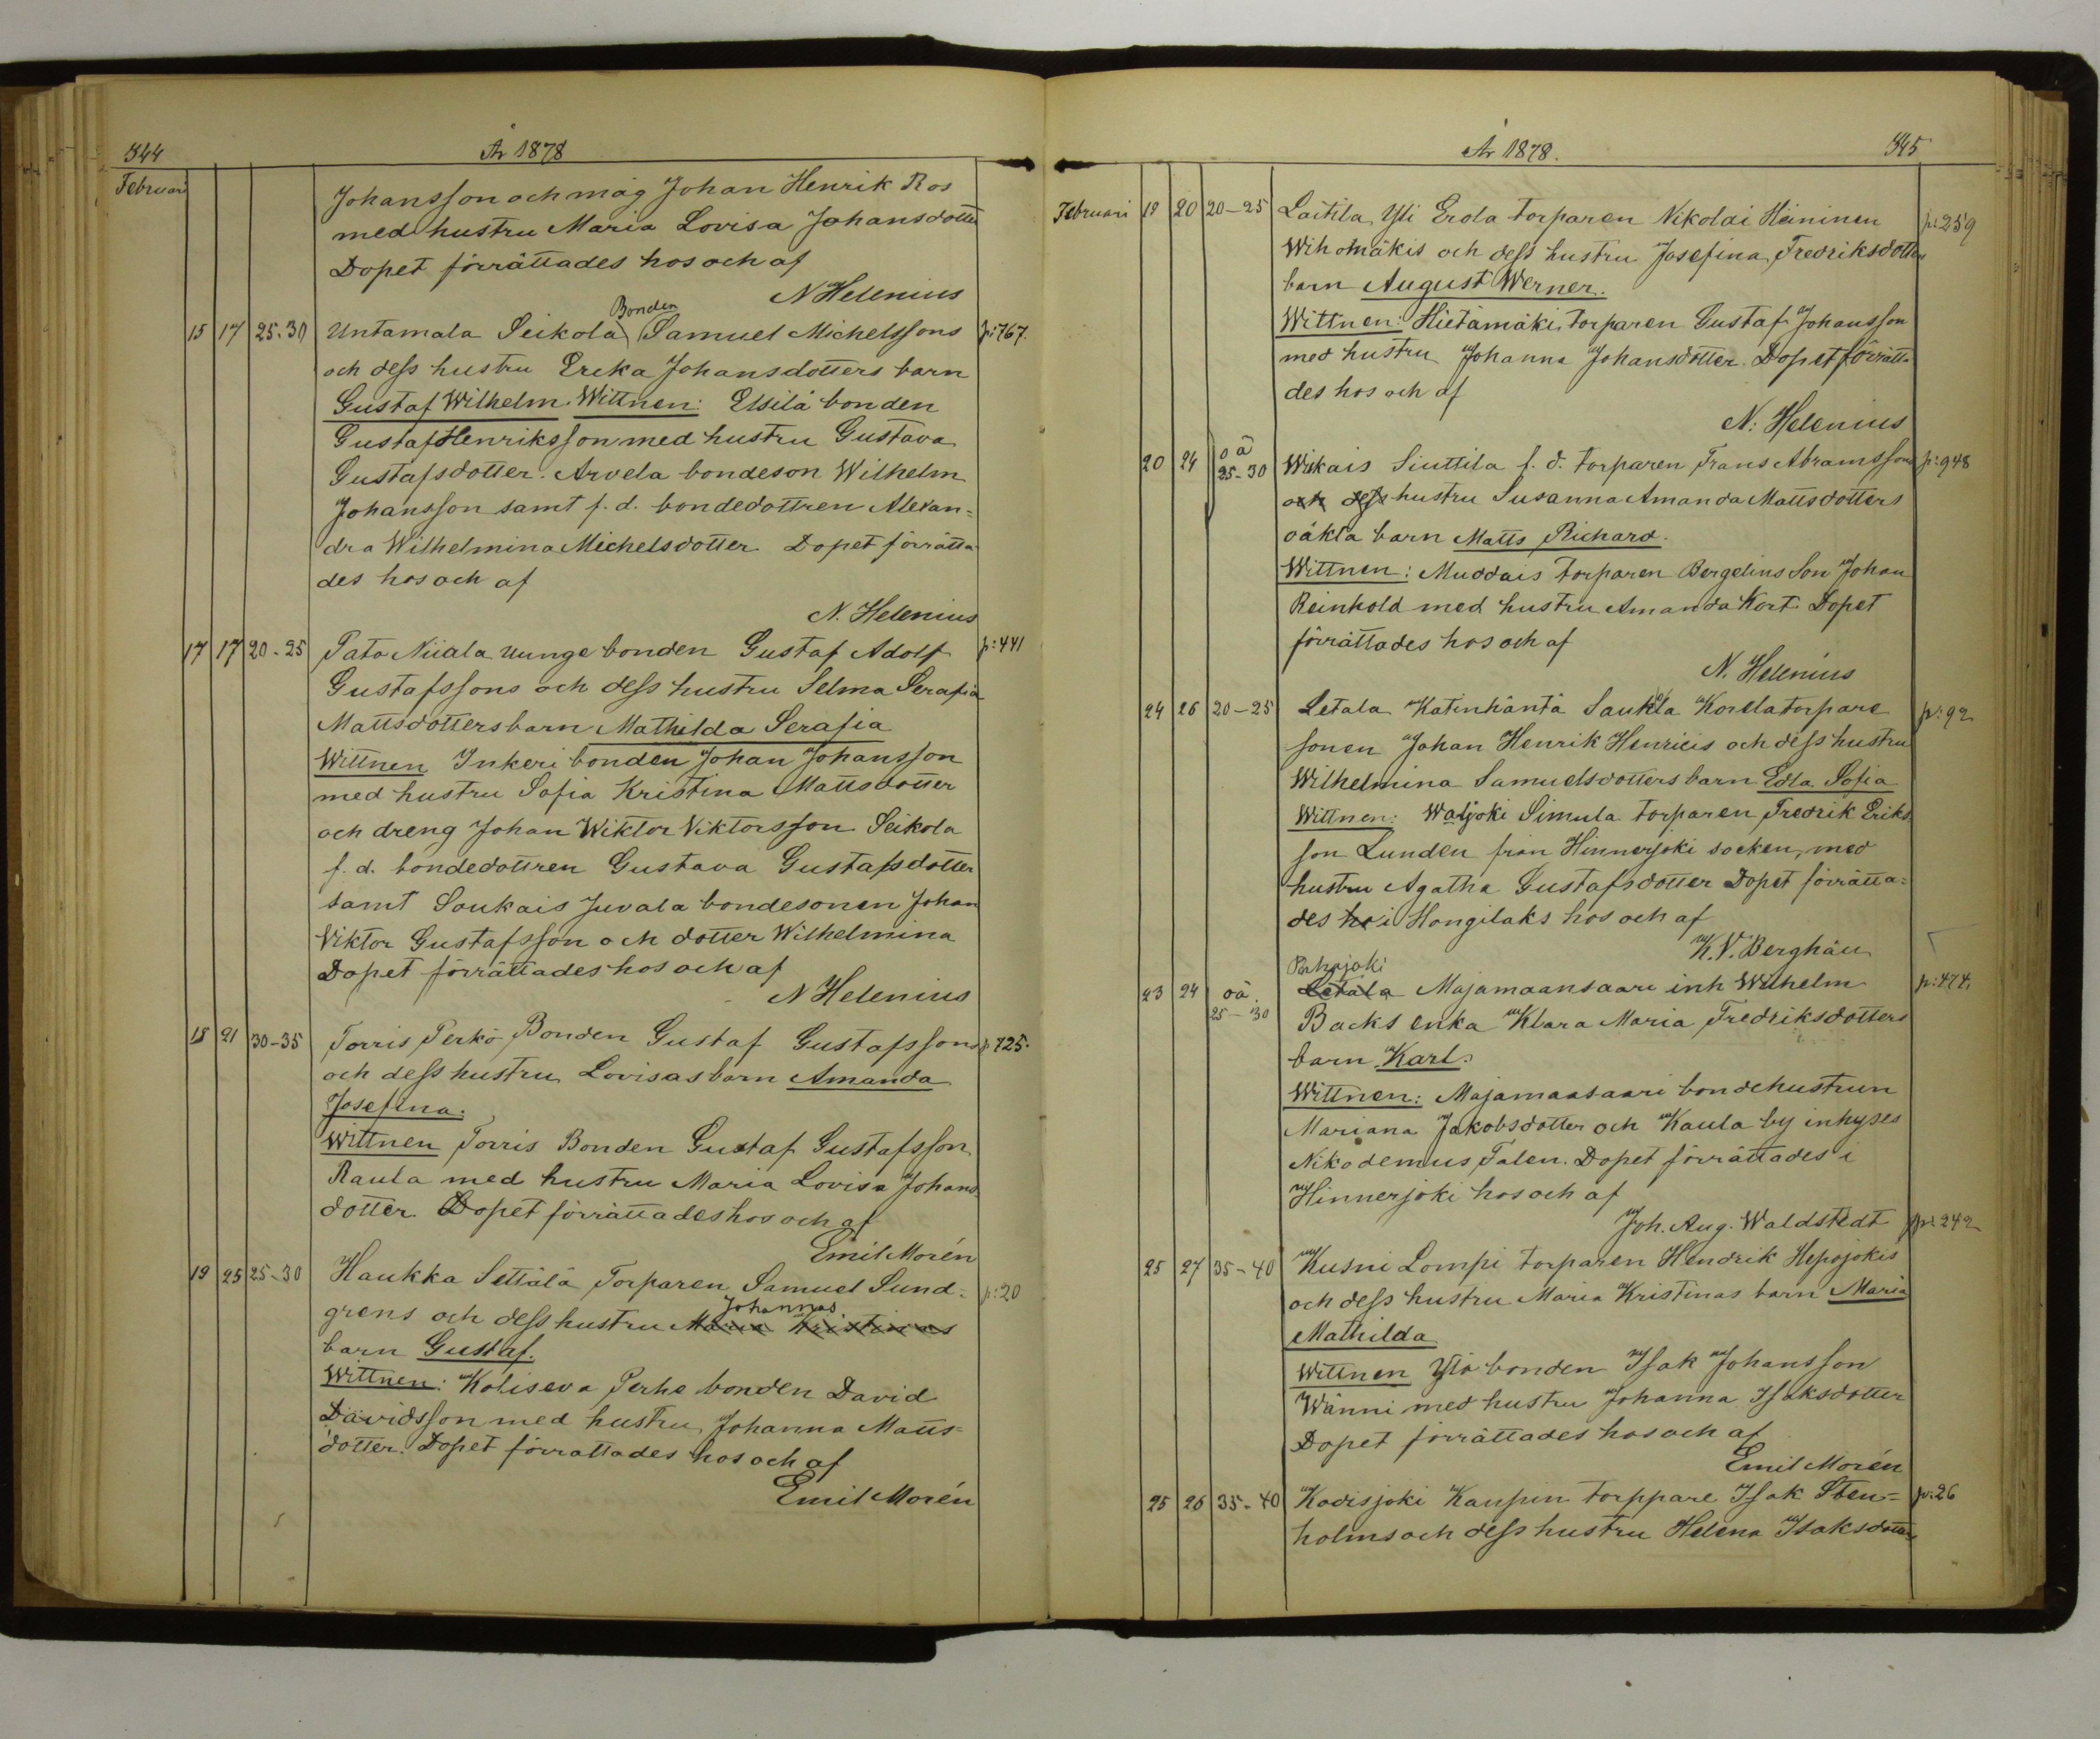 344
År 1878
Februari
Johansson och måg Johan Henrik Ros
med hustru Maria Lovisa Johansdotter
Dopet förrättades hos och af
N Helenius
Bonden
15 17 25-30 Untamala Seikola Samuel Michelssons p:767.
och dess hustru Erika Johansdotters barn
Gustaf Wilhelm. Wittnen: Elsilä bonden
Gustaf Henriksson med hustru Gustava
Gustafsdotter. Arvela bondeson Wilhelm
Johansson samt f. d. bondedottren Alexan=
dra Wilhelmina Michelsdotter Dopet förrätta-
des hos och af
N. Helenius
17 17 20-25 Pato Niiala unge bonden Gustaf Adolf p:441
Gustafssons och dess hustru Selma Serafia
Mattsdotters barn Mathilda Serafia
Wittnen Inkeri bonden Johan Johansson
med hustru Sofia Kristina Mattsdotter
och dreng Johan Wiktor Viktorsson Seikola
f. d. bondedottren Gustava Gustafsdotter
samt Soukais Juvala bondesonen Johan
Viktor Gustafsson och dotter Wilhelmina
Dopet förrättades hos och af
N Helenius
18 21 30-35 Torris Perkö Bonden Gustaf Gustafssons p:725.
och dess hustru Lovisas barn Amanda
Josefina.
Wittnen Torris Bonden Gustaf Gustafsson
Raula med hustru Maria Lovisa Johans
dotter. Dopet förrättades hos och af
Emil Morén
19 25 25-30 Haukka Settälä Torparen Samuel Sund= p:20
Johannas
grens och dess hustru Maria Kristinas
barn Gustaf.
Wittnen: Koliseva Perho bonden David
Davidsson med hustru Johanna Matts=
dotter. Dopet förrattades hos och af
Emil Morén
År 1878.
345
Februari 19 20 20-25 Laitila Yli Erola torparen Nikolai Heininen p:259
Wihomäkis och dess hustru Josefina Fredriksdotters
barn August Werner.
Wittnen: Hietamäki torparen Gustaf Johansson
med hustru Johanna Johansdotter. Dopet förrätta
des hos och af
N: Helenius
20 24 oä 25-30 Wiikais Siuttila f. d. torparen Frans Abramssons p:948
och dess hustru Susanna Amanda Mattsdotters
oäkta barn Matts Richard.
Wittnen: Muddais torparen Bergelins Son Johan
Reinhold med hustru Amanda Kort. Dopet
förrättades hos och af
N. Helenius
24 26 20-25 Letala Katinhäntä Saukkla Korela torpare p:92
sonen Johan Henrik Henricis och dess hustru
Wilhelmina Samuelsdotters barn Edla Sofia
Wittnen: Waljoki Simula torparen Fredrik Eriks
son Lunden från Hinnerjoki socken, med
hustru Agatha Gustafsdotter Dopet förrätta=
des ho i Hongilaks hos och af
K. V. Berghäu
23 24 oä. 25-30 Letala Majamaansaari inh Wilhelm p:474.
Backs enka Klara Maria Fredriksdotters
barn Karl.
Wittnen: Majamaasaari bondehustrun
Mariana Jakobsdotter och Kaula by inhyses
Nikodemus Falen. Dopet förrättades i
Hinnerjoki hos och af
Joh. Aug. Waldstedt
25 27 35-40 Kusni Lompi torparen Hendrik Hepojokis p:242
och dess hustru Maria Kristinas barn Maria
Mathilda
Wittnen Ylö bonden Isak Johansson
Wänni med hustru Johanna Isaksdotter
Dopet förrättades hos och af
Emil Morén
25 26 35-40 Kodisjoki Kaupin torppare Isak Sten= p:26
holms och dess hustru Helena Isaksdotters